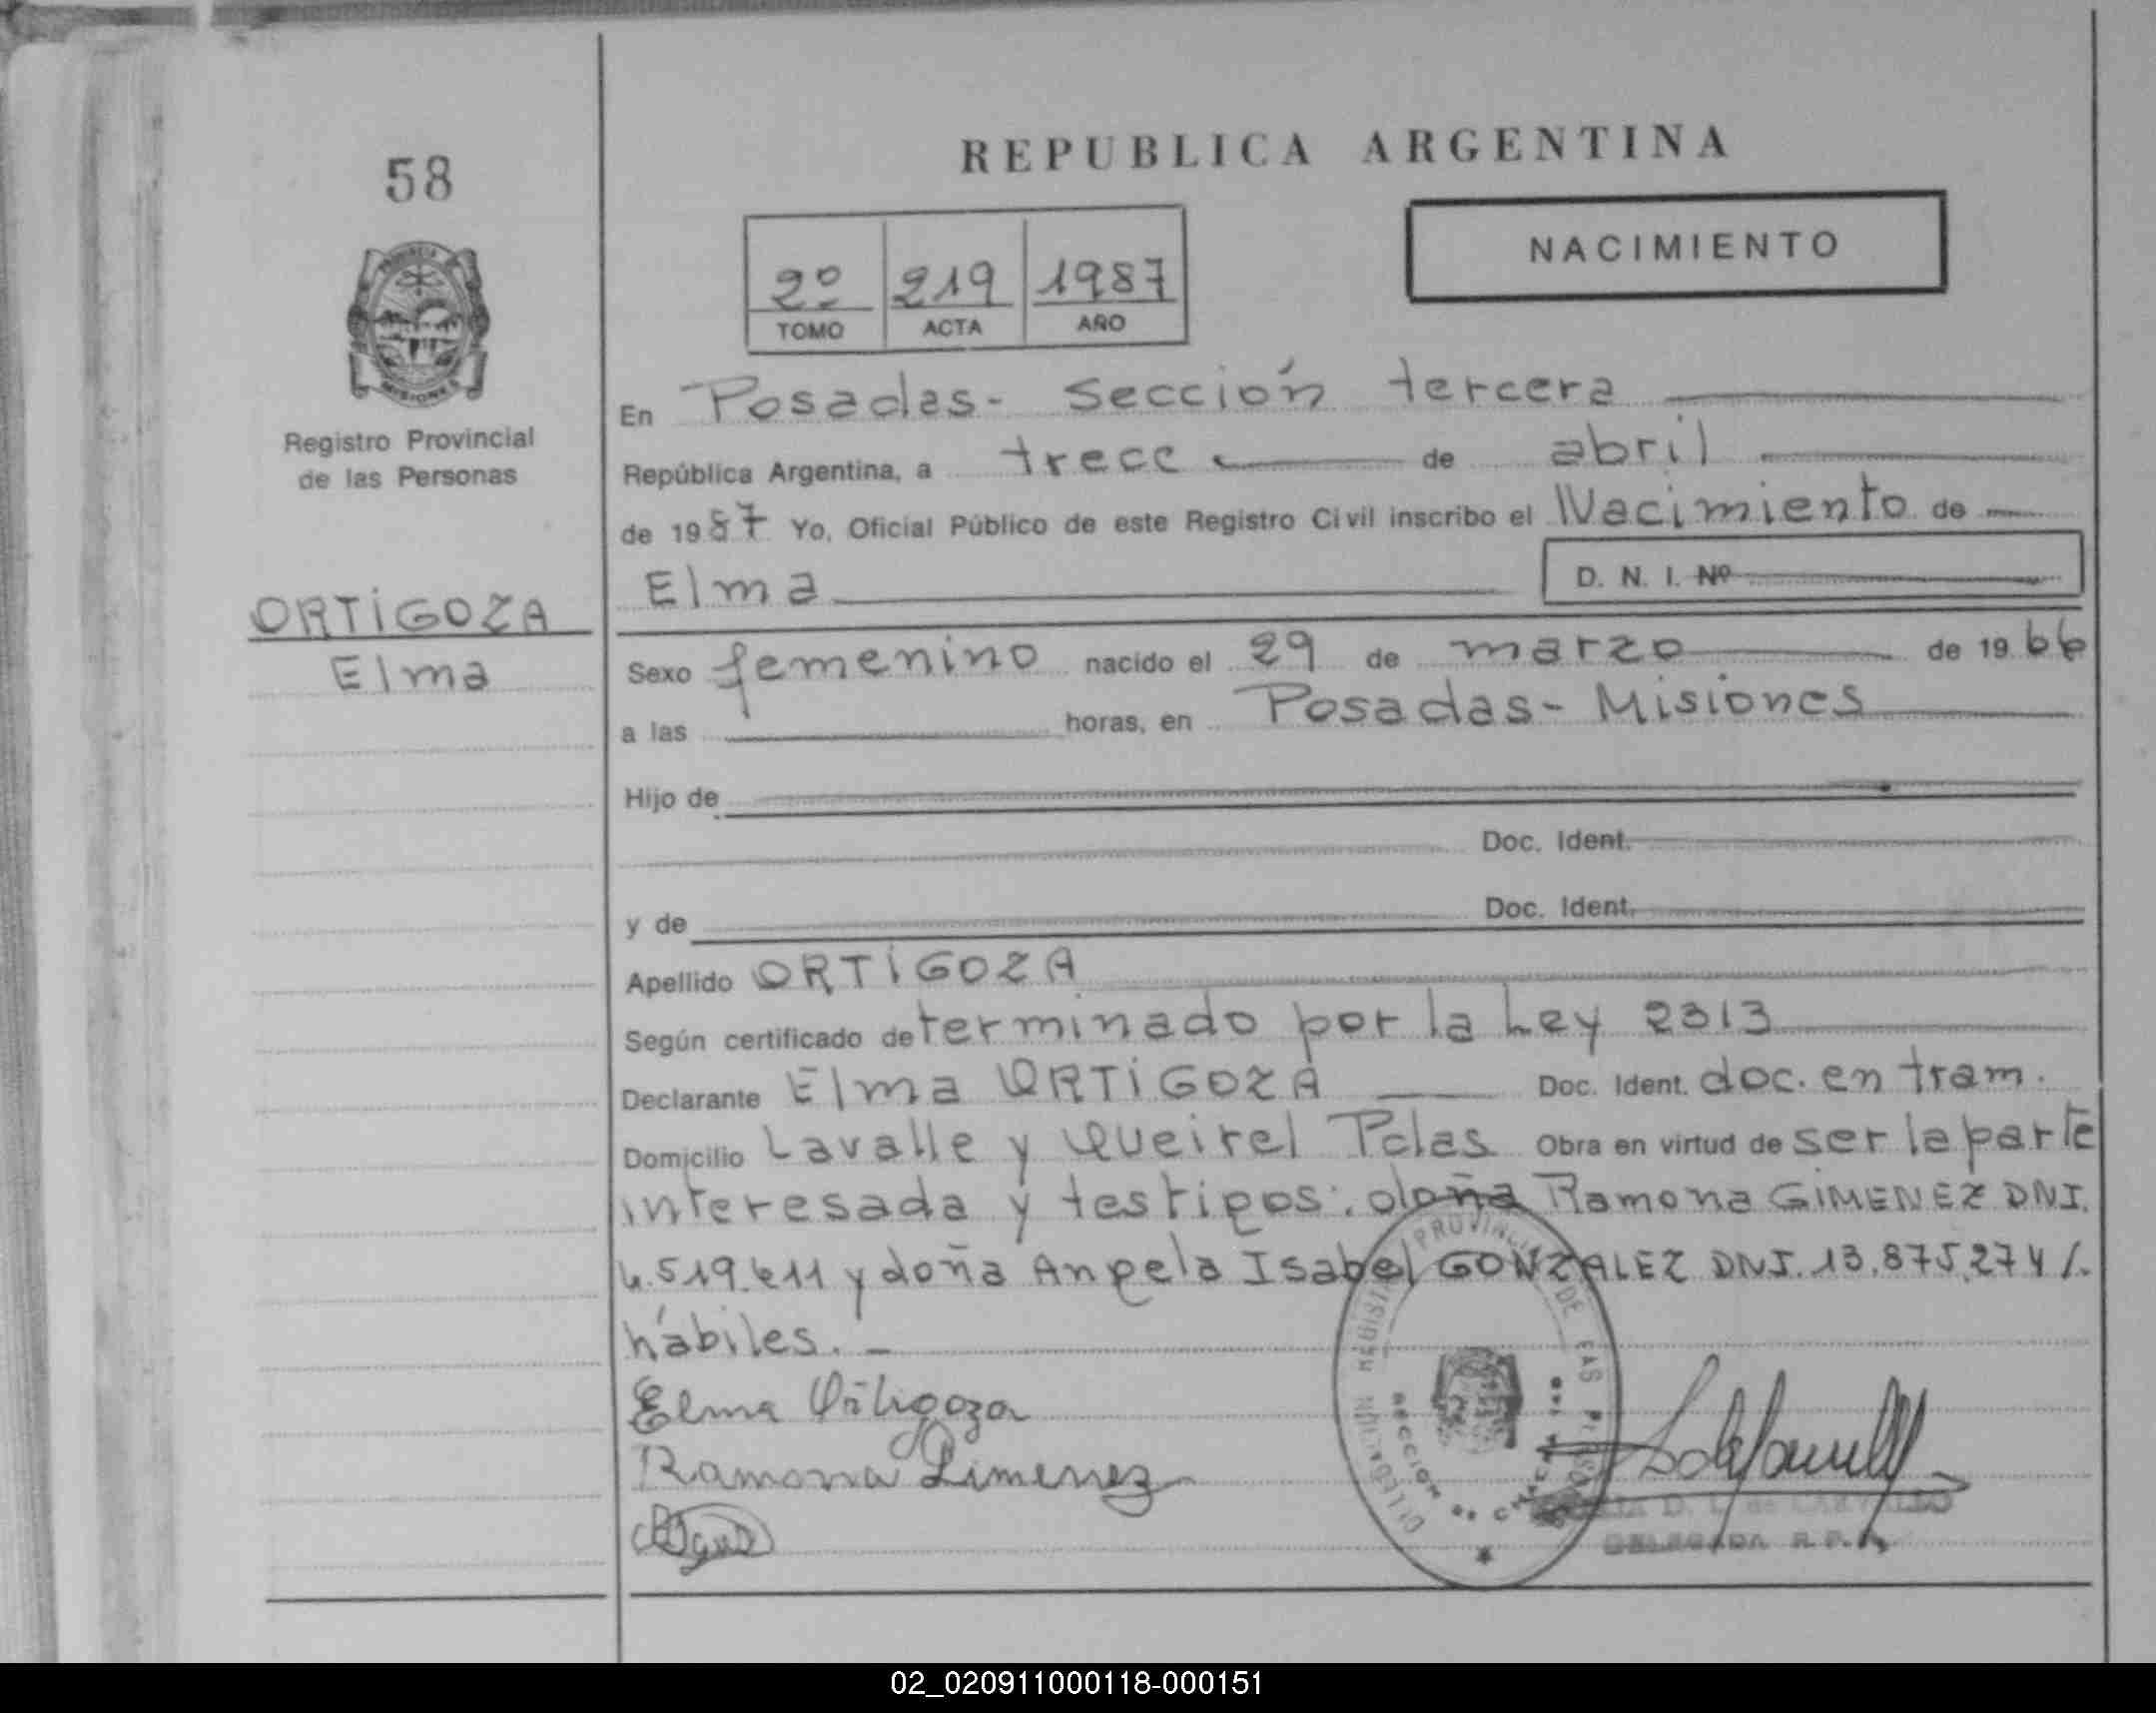 58
REPUBLICA ARGENTINA
NACIMIENTO
2º 219 1987
TOMO ACTA AÑO
PROVINCIA DE
MISIONES
Registro Provincial
de las Personas
ORTIGOZA
Elma
En Posadas - Sección tercera
República Argentina, a trece de abril
de 1987 Yo, Oficial Público de este Registro Civil inscribo el Nacimiento de
Elma D. N. I. Nº
Sexo femenino nacido el 29 de marzo de 1966
a las horas, en Posadas - Misiones
Hijo de
Doc. Ident.
y de Doc. Ident.
Apellido ORTIGOZA
Según certificado determinado por la Ley 2313
Declarante Elma ORTIGOZA Doc. Ident. doc. en tram.
Domicilio Lavalle y Queirel Pdas Obra en virtud de ser la parte
interesada y testigos: doña Ramona GIMENEZ DNI.
4.519.611 y doña Angela Isabel GONZALEZ DNI. 13.875.274 /.
hábiles. -
Elma Ortigoza
Ramona Gimenez
REGISTRO PROVINCIAL DE LAS PERSONAS
D. L. de CARVALLO
DELEGADA R.P.
02_020911000118-000151